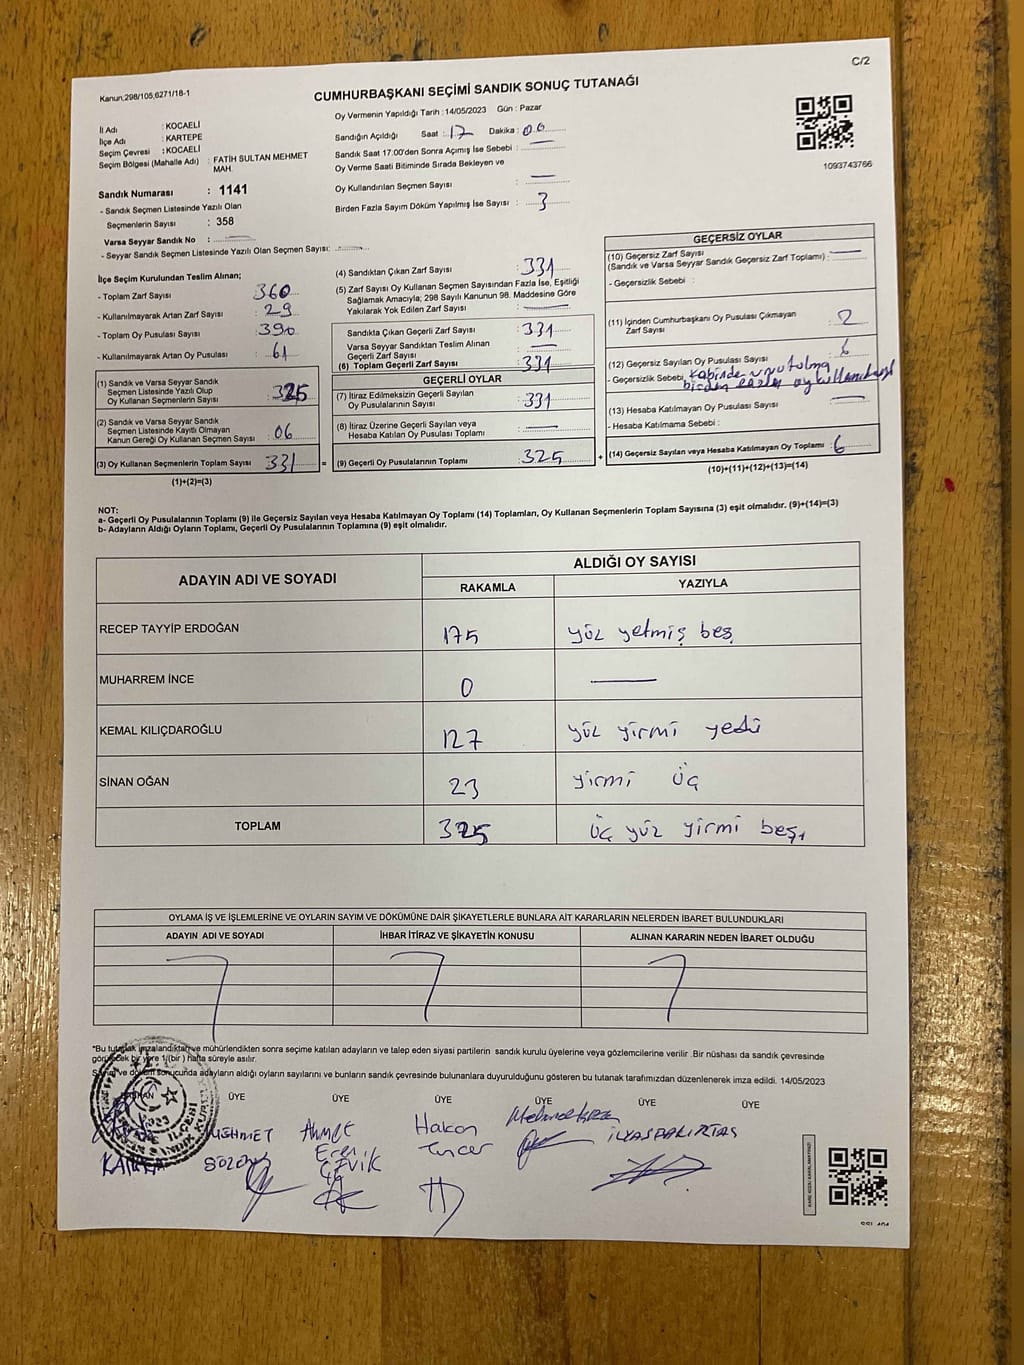 C/2
Kanun,298/105,6271/18-1
CUMHURBAŞKANI SEÇİMİ SANDIK SONUÇ TUTANAĞI
Oy Vermenin Yapıldığı Tarih : 14/05/2023 Gün : Pazar
İl Adı : KOCAELİ
İlçe Adı : KARTEPE
Seçim Çevresi : KOCAELİ
Seçim Bölgesi (Mahalle Adı) : FATİH SULTAN MEHMET
MAH.
Sandık Numarası : 1141
- Sandık Seçmen Listesinde Yazılı Olan
Seçmenlerin Sayısı : 358
Varsa Seyyar Sandık No :
- Seyyar Sandık Seçmen Listesinde Yazılı Olan Seçmen Sayısı:
Sandığın Açıldığı Saat : 17 Dakika : 00
Sandık Saat 17.00'den Sonra Açımış İse Sebebi :
Oy Verme Saati Bitiminde Sırada Bekleyen ve
Oy Kullandırılan Seçmen Sayısı :
Birden Fazla Sayım Döküm Yapılmış İse Sayısı : 3
1093743766
İlçe Seçim Kurulundan Teslim Alınan;
- Toplam Zarf Sayısı 360
- Kullanılmayarak Artan Zarf Sayısı : 29
- Toplam Oy Pusulası Sayısı : 390
- Kullanılmayarak Artan Oy Pusulası : 61
(1) Sandık ve Varsa Seyyar Sandık
Seçmen Listesinde Yazılı Olup
Oy Kullanan Seçmenlerin Sayısı : 325
(2) Sandık ve Varsa Seyyar Sandık
Seçmen Listesinde Kayıtlı Olmayan
Kanun Gereği Oy Kullanan Seçmen Sayısı : 06
(3) Oy Kullanan Seçmenlerin Toplam Sayısı 331 =
(1)+(2)=(3)
(4) Sandıktan Çıkan Zarf Sayısı : 331
(5) Zarf Sayısı Oy Kullanan Seçmen Sayısından Fazla İse, Eşitliği
Sağlamak Amacıyla; 298 Sayılı Kanunun 98. Maddesine Göre
Yakılarak Yok Edilen Zarf Sayısı :
Sandıkta Çıkan Geçerli Zarf Sayısı : 331
Varsa Seyyar Sandıktan Teslim Alınan
Geçerli Zarf Sayısı :
(6) Toplam Geçerli Zarf Sayısı : 331
GEÇERLİ OYLAR
(7) İtiraz Edilmeksizin Geçerli Sayılan
Oy Pusulalarının Sayısı : 331
(8) İtiraz Üzerine Geçerli Sayılan veya
Hesaba Katılan Oy Pusulası Toplamı :
(9) Geçerli Oy Pusulalarının Toplamı : 325 +
GEÇERSİZ OYLAR
(10) Geçersiz Zarf Sayısı
(Sandık ve Varsa Seyyar Sandık Geçersiz Zarf Toplamı) :
- Geçersizlik Sebebi :
(11) İçinden Cumhurbaşkanı Oy Pusulası Çıkmayan
Zarf Sayısı : 2
(12) Geçersiz Sayılan Oy Pusulası Sayısı : 6
- Geçersizlik Sebebi, Kabinde unutulma
birden fazla oy kullanılması
(13) Hesaba Katılmayan Oy Pusulası Sayısı :
- Hesaba Katılmama Sebebi :
(14) Geçersiz Sayılan veya Hesaba Katılmayan Oy Toplamı : 6
(10)+(11)+(12)+(13)=(14)
NOT:
a- Geçerli Oy Pusulalarının Toplamı (9) ile Geçersiz Sayılan veya Hesaba Katılmayan Oy Toplamı (14) Toplamları, Oy Kullanan Seçmenlerin Toplam Sayısına (3) eşit olmalıdır. (9)+(14)=(3)
b- Adayların Aldığı Oyların Toplamı, Geçerli Oy Pusulalarının Toplamına (9) eşit olmalıdır.
ADAYIN ADI VE SOYADI
ALDIĞI OY SAYISI
RAKAMLA YAZIYLA
RECEP TAYYİP ERDOĞAN 175 yüz yetmiş beş
MUHARREM İNCE 0
KEMAL KILIÇDAROĞLU 127 yüz yirmi yedi
SİNAN OĞAN 23 yirmi üç
TOPLAM 325 üç yüz yirmi beş
OYLAMA İŞ VE İŞLEMLERİNE VE OYLARIN SAYIM VE DÖKÜMÜNE DAİR ŞİKAYETLERLE BUNLARA AİT KARARLARIN NELERDEN İBARET BULUNDUKLARI
ADAYIN ADI VE SOYADI İHBAR İTİRAZ VE ŞİKAYETİN KONUSU ALINAN KARARIN NEDEN İBARET OLDUĞU
*Bu tutanak imzalandıktan ve mühürlendikten sonra seçime katılan adayların ve talep eden siyasi partilerin sandık kurulu üyelerine veya gözlemcilerine verilir .Bir nüshası da sandık çevresinde
görülecek bir yere 1 (bir) hafta süreyle asılır.
Sayım ve döküm sonucunda adayların aldığı oyların sayılarını ve bunların sandık çevresinde bulunanlara duyurulduğunu gösteren bu tutanak tarafımızdan düzenlenerek imza edildi. 14/05/2023
BAŞKAN ÜYE ÜYE ÜYE ÜYE ÜYE ÜYE
MEHMET
Ahmet
Eren
ÇEVİK
Hakan
Tuncer